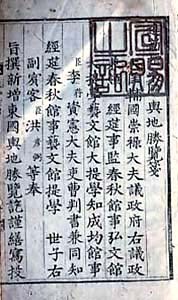 輿地勝覽箋
輔國崇祿大夫議政府右議政
經筵事監春秋館事弘文館
藝文館大提學知成均館事
臣李荇資憲大夫吏曹判書兼同知
經筵春秋館事藝文館提學 世子右
副賓客臣洪彦弼等奉
旨撰新增東國輿地勝覽訖謹繕寫投